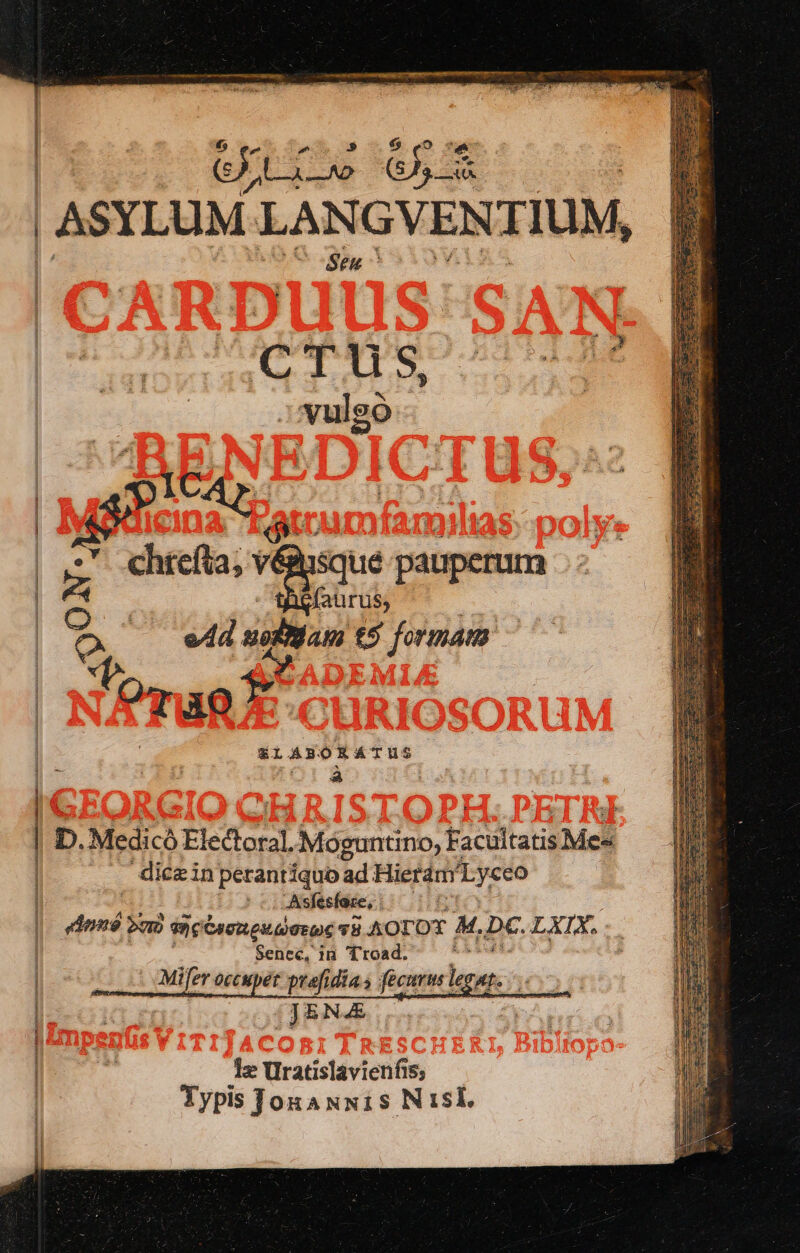 ASYLUM LANGVENTIUM,
Seu
CARDUUS SAN-
CTUS,
vulgò
BENEDICTUS,
Medicina Patrumfamilias poly-
chresta, verusque pauperum
thesaurus,
Ad normam & formam
ACADEMIÆ
NATURÆ CURIOSORUM
ELABORATUS
à
GEORGIO CHRISTOPH. PETRI.
D. Medicò Electoral. Moguntino, Facultatis Me-
dicæ in perantiquo ad Hieram Lyceo
Assessore,
Anno M.DC.LXIX.
Senec. in Troad.
Miser occupet præsidia, securus legat.
JENÆ
Impensis VITI JACOBI TRESCHERI, Bibliopo-
læ Uratislaviensis,
Typis JOHANNIS NISI.